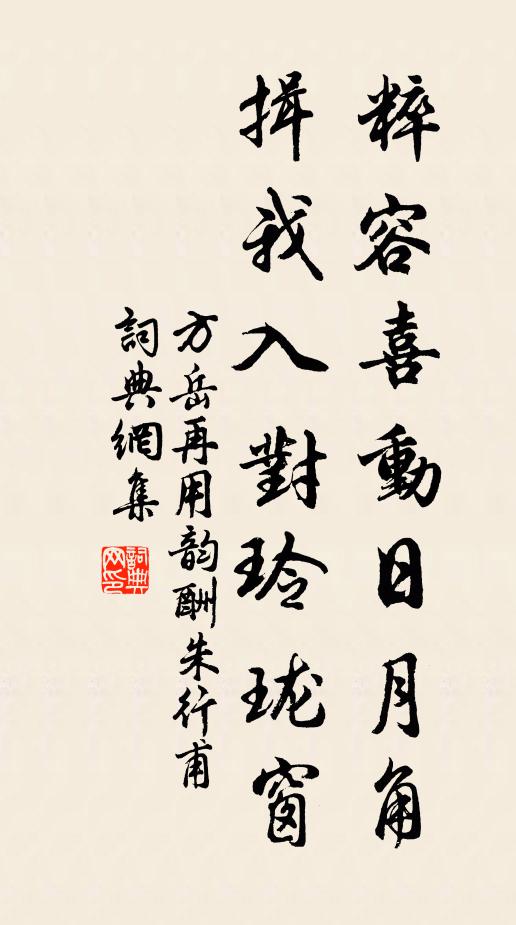 粹容喜動日月角
揖我入對玲珑窗
方岳再用韵酬朱行甫
詞典網集
詞典网印